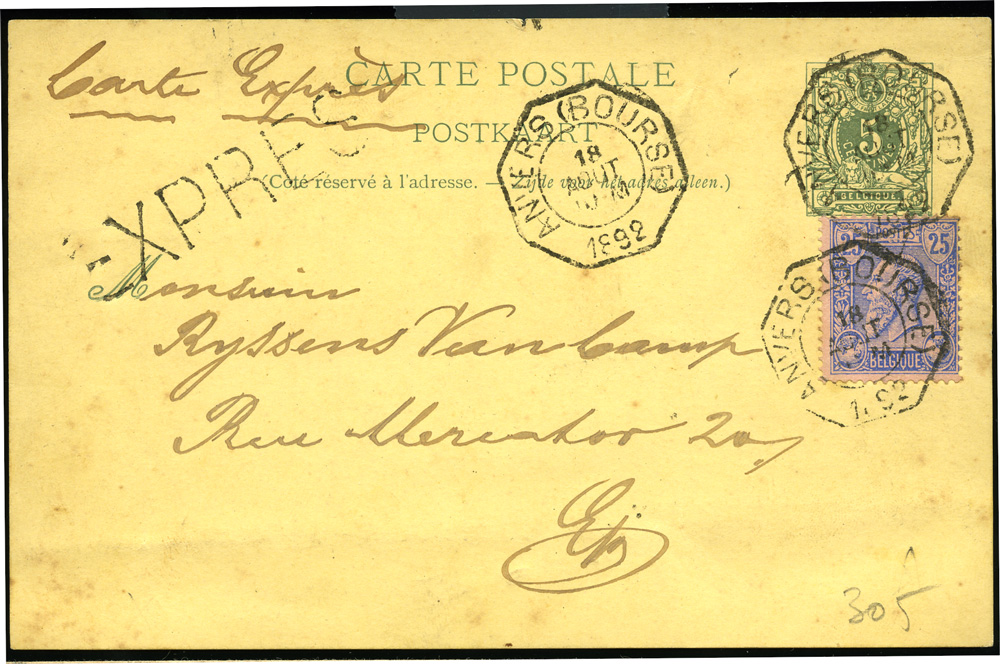 Carte Exprès
CARTE POSTALE
POSTKAART
(Coté réservé à l'adresse. — Zijde voor het adres alleen.)
EXPRES
ANVERS (BOURSE)
18
AOUT
1892
ANVERS (BOURSE)
5
BELGIQUE
25 25
BELGIQUE
ANVERS (BOURSE)
18
Monsieur
Ryssens Van Camp
Rue Mercator 20
305